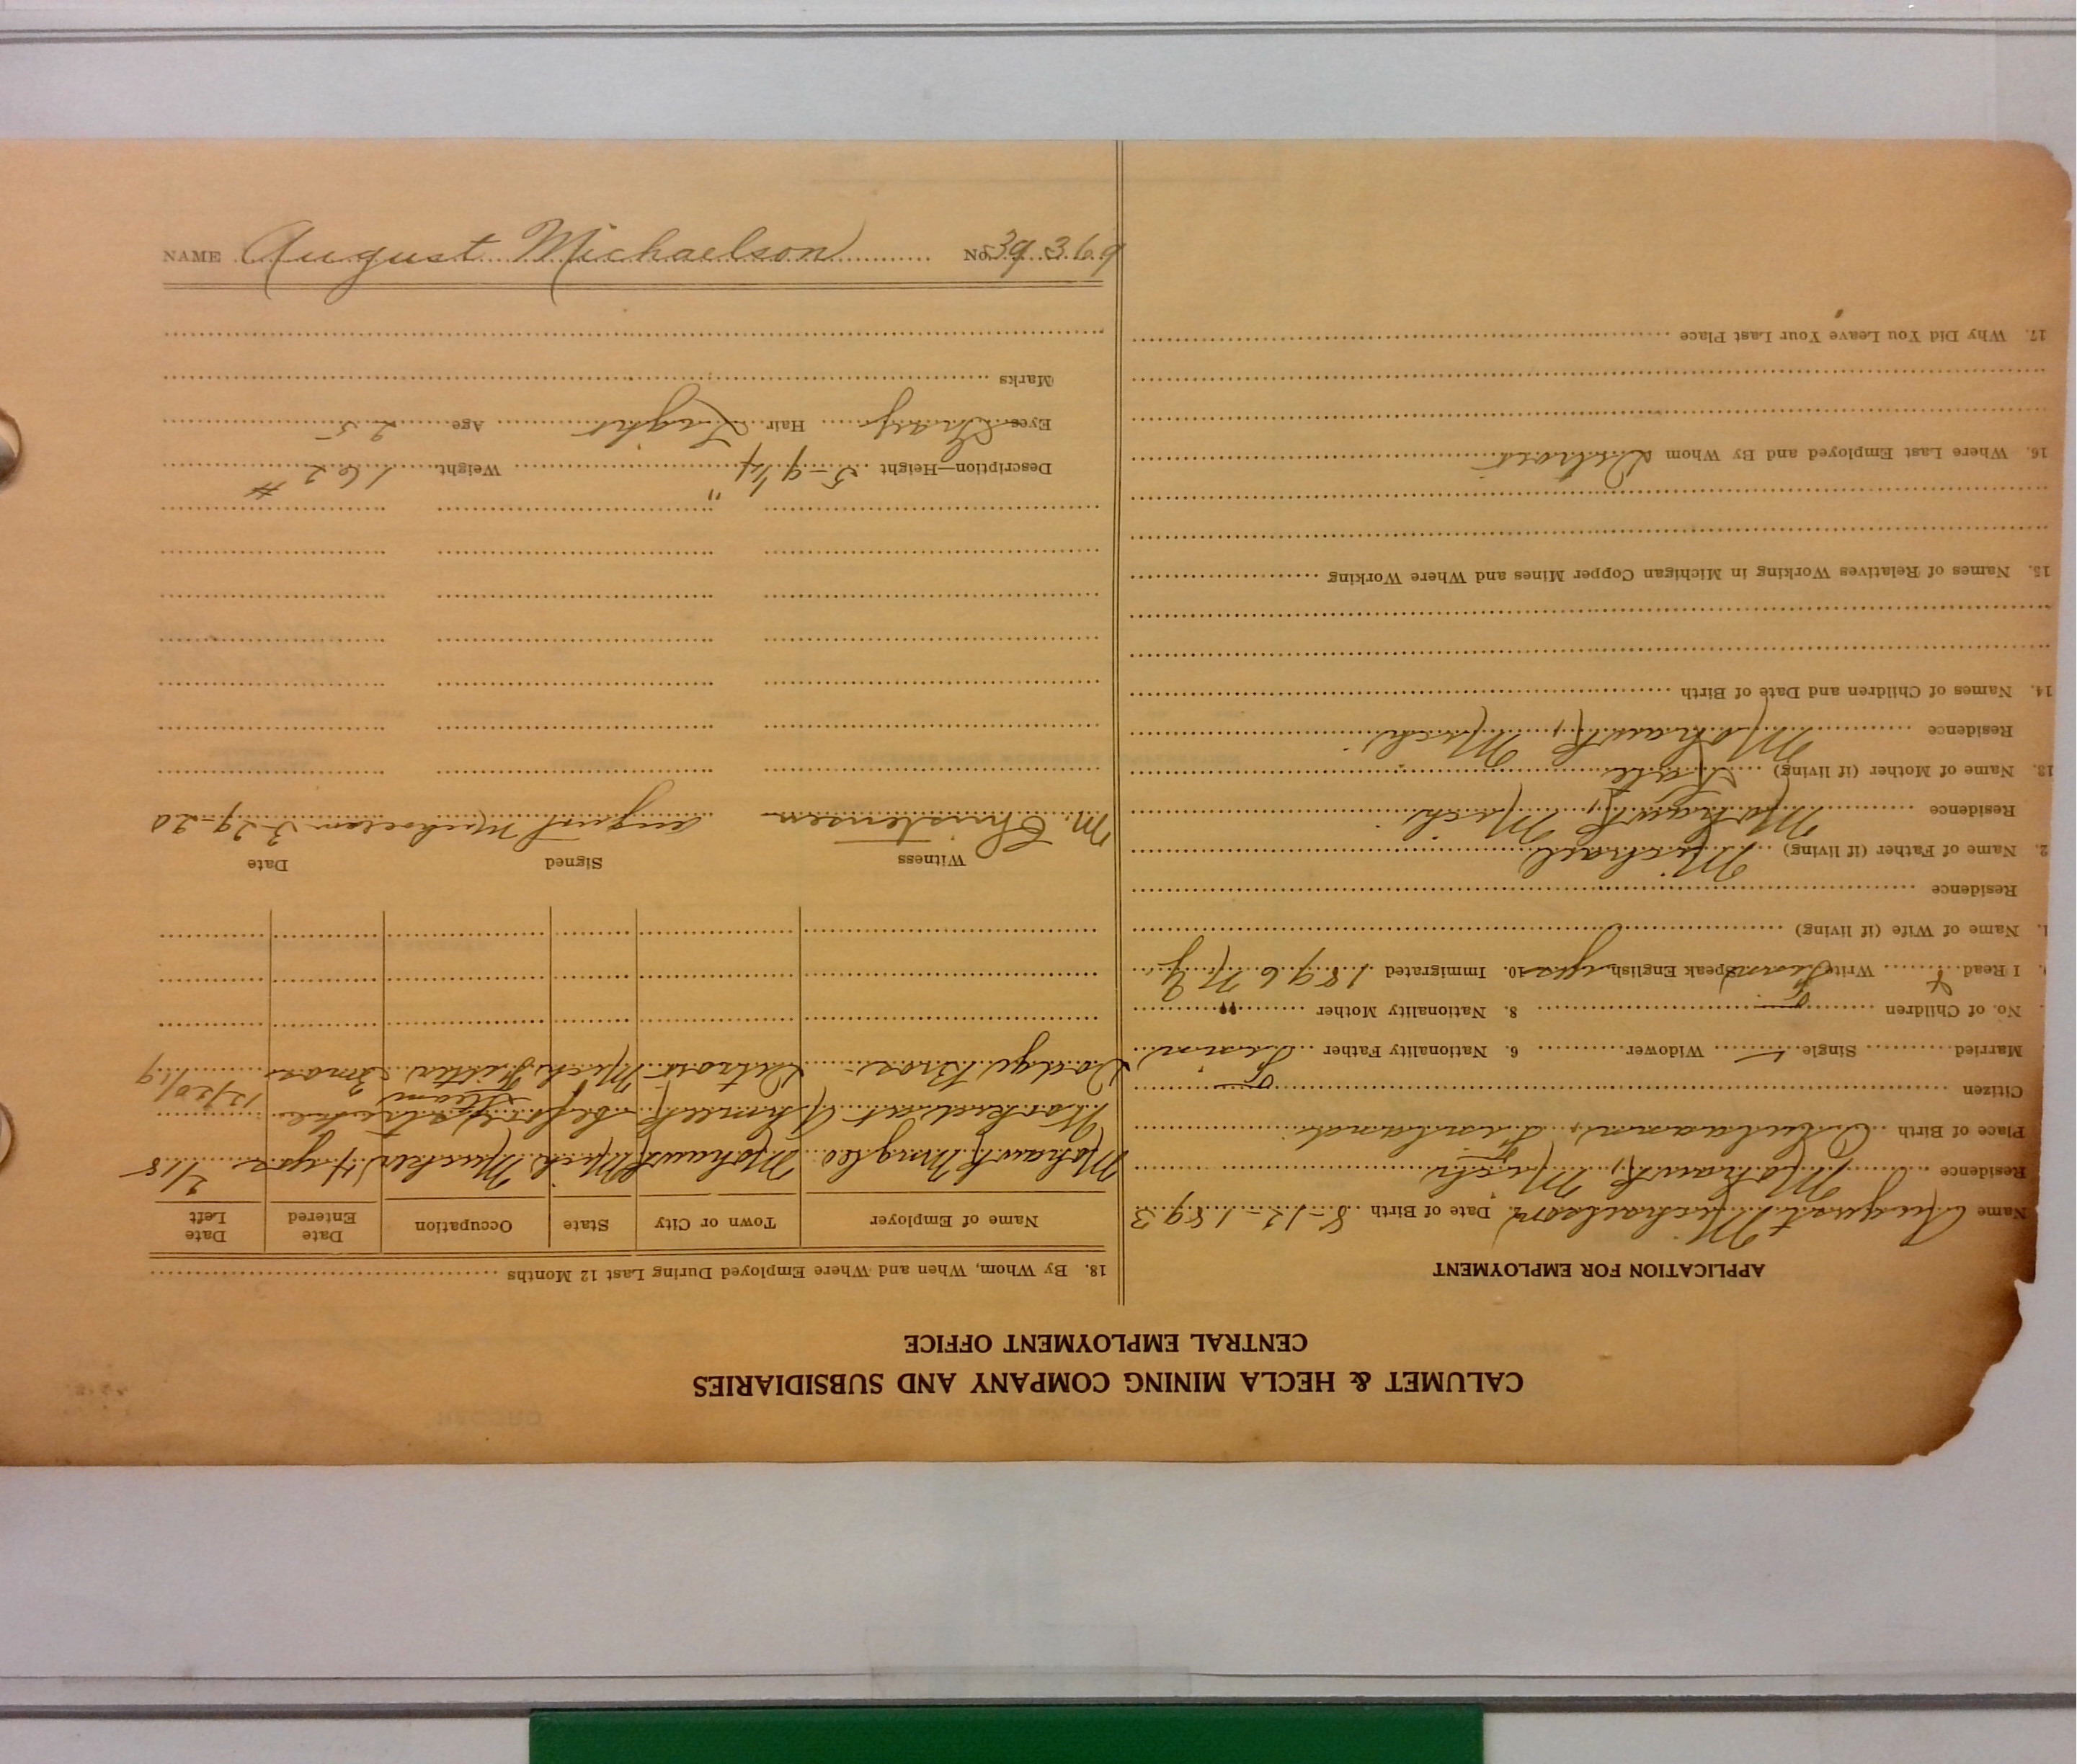 CALUMET & HECLA MINING COMPANY AND SUBSIDIARIES
CENTRAL EMPLOYMENT OFFICE
APPLICATION FOR EMPLOYMENT
Name August Michaelson 2. Date of Birth 8-12-1893
Residence Mohawk, Mich
Place of Birth Finland
Citizen
Married Single Widower 6. Nationality Father Finn
No. of Children 8. Nationality Mother "
I Read Write Finn Speak English yes 10. Immigrated 1896 N Y
Name of Wife (if living)
Residence
2. Name of Father (if living) Michael
Residence Mohawk, Mich
13. Name of Mother (if living) Kate
Residence Mohawk, Mich
14. Names of Children and Date of Birth
15. Names of Relatives Working in Michigan Copper Mines and Where Working
16. Where Last Employed and By Whom Detroit
17. Why Did You Leave Your Last Place
18. By Whom, When and Where Employed During Last 12 Months
Name of Employer Town or City State Occupation Date Entered Date Left
Mohawk Mng Co Mohawk Mich Mucker 4 yrs 2/18
Worked at Ahmeek before strike
Dodge Bros Detroit Mich Steam Fitter 3 mos 12/20/19
Witness Signed Date
M. Christensen August Michaelson 3-29-20
Description—Height 5-9 1/4" Weight 162 #
Eyes Gray Hair Light Age 25
Marks
NAME August Michaelson No. 39369